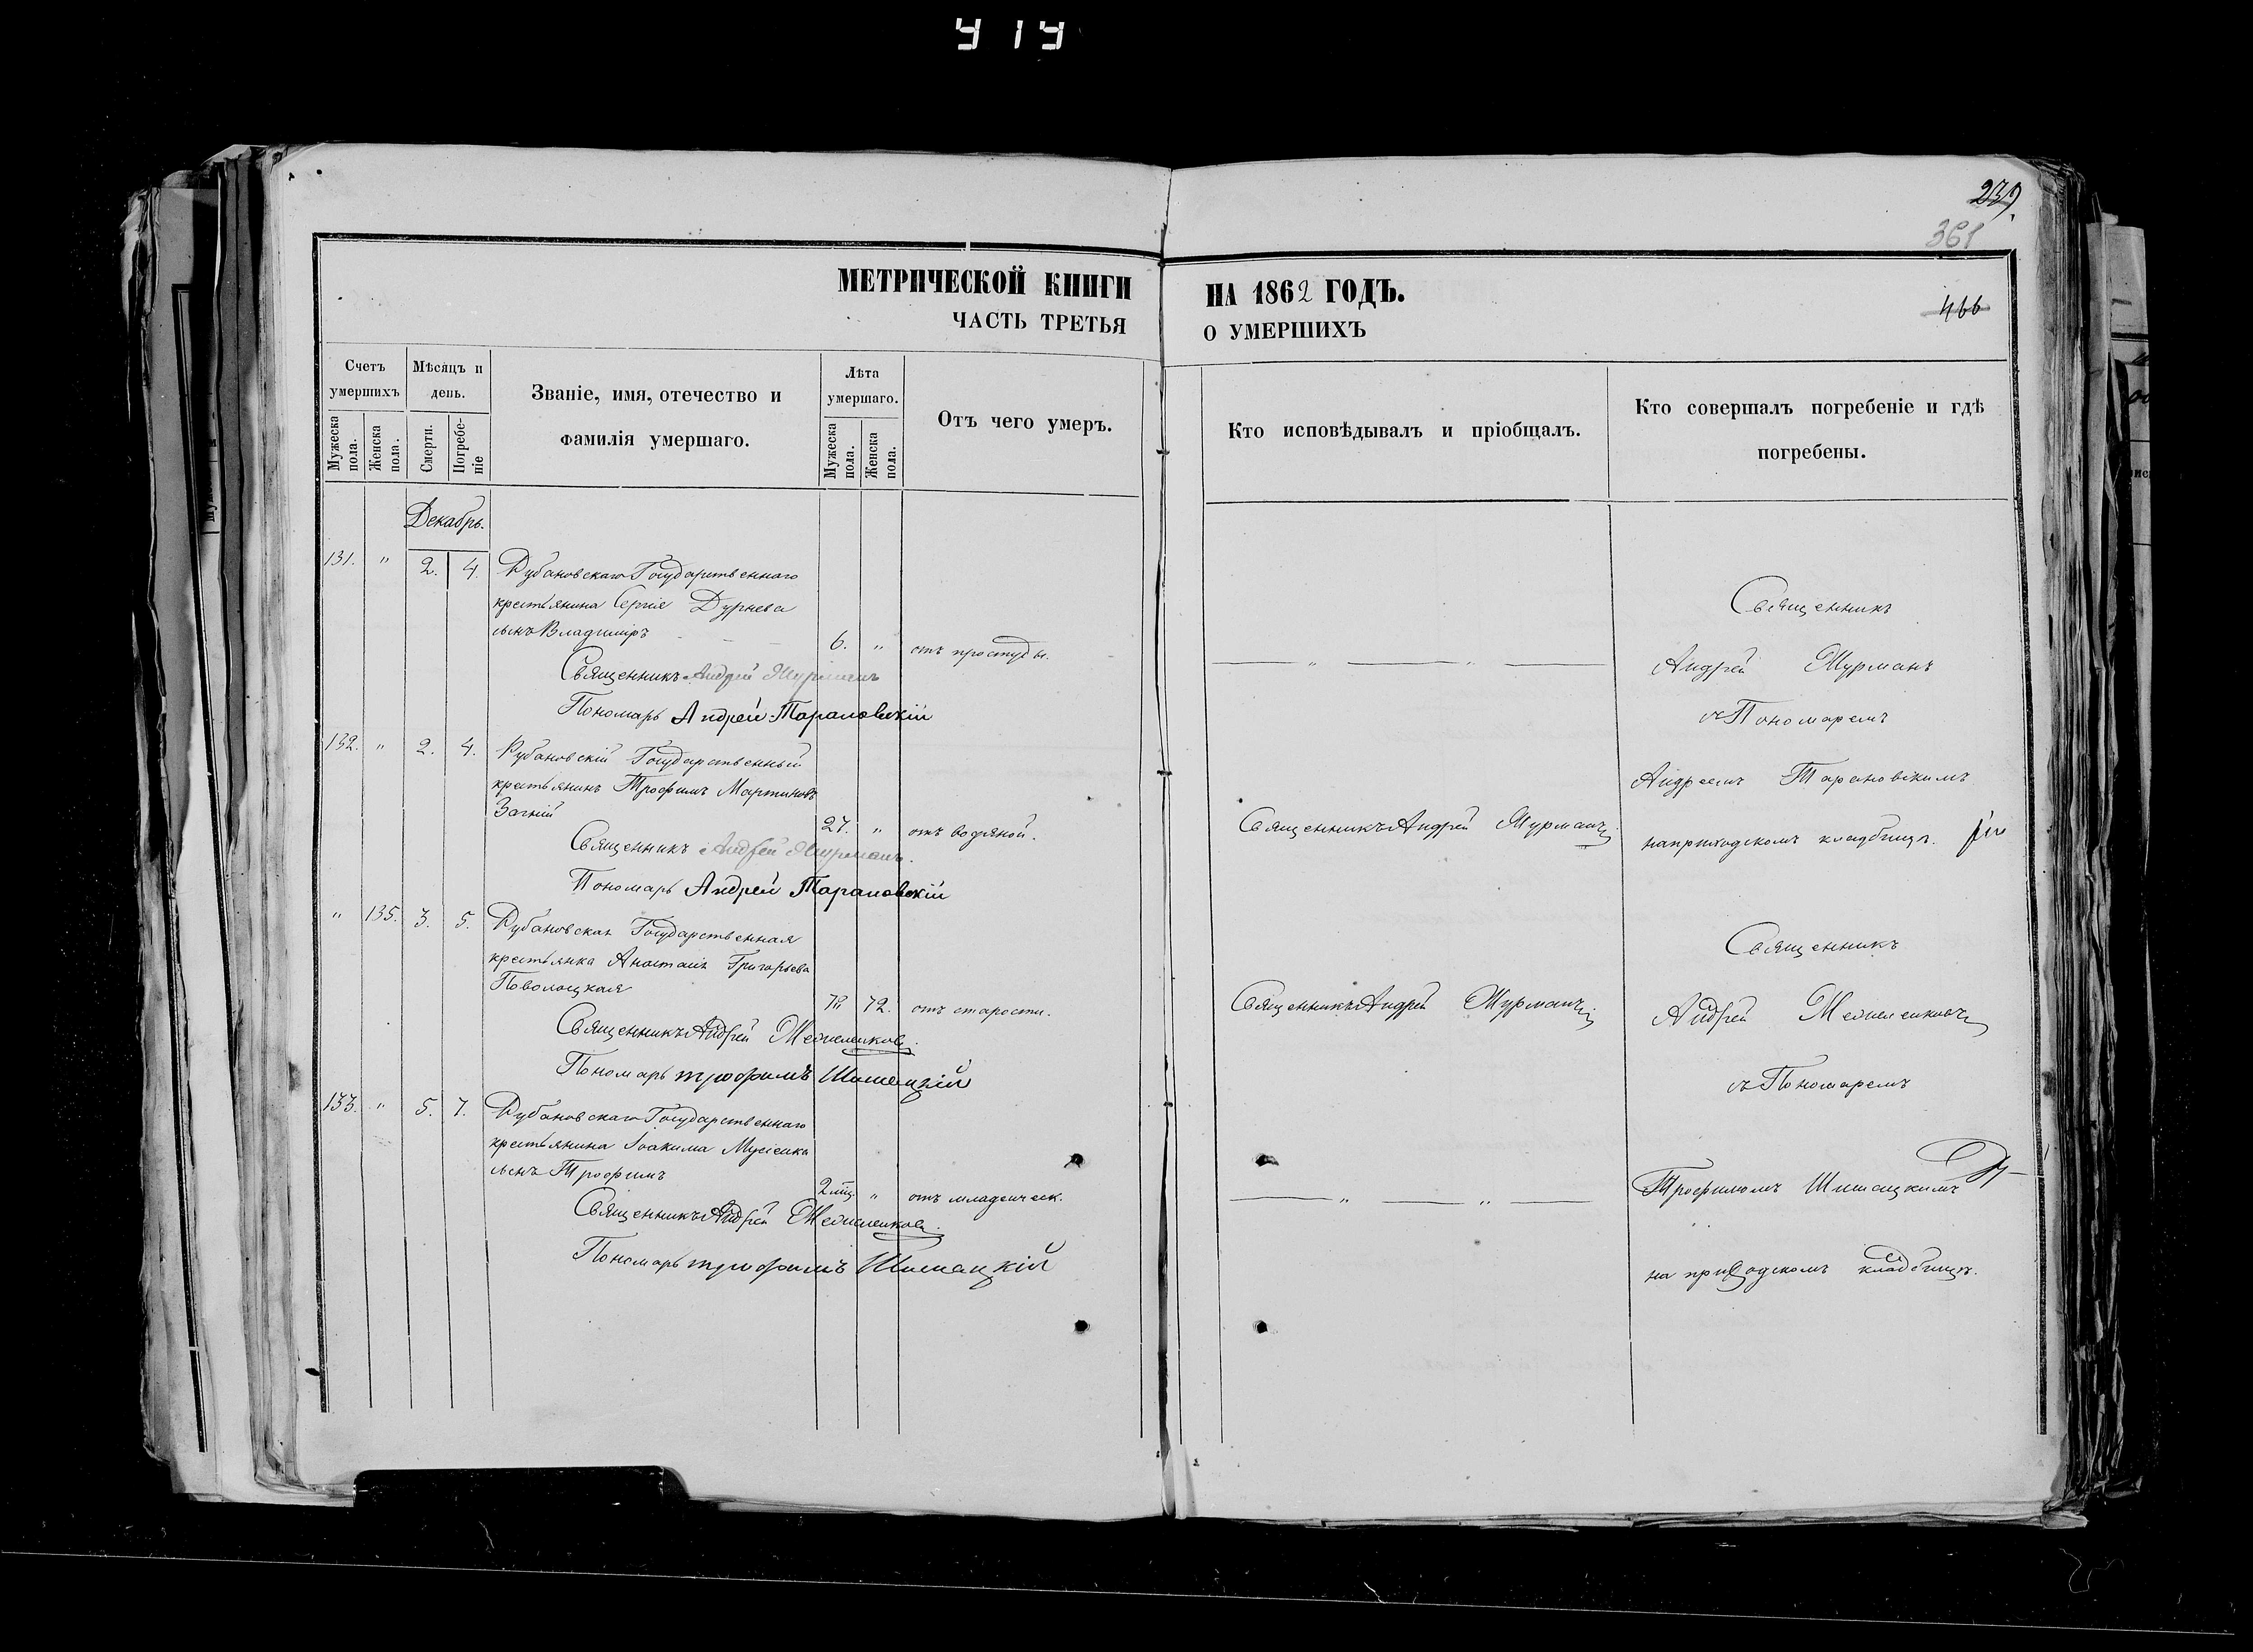 419
239
361
466
МЕТРИЧЕСКОЙ КНИГИ НА 1862 ГОДЪ.
ЧАСТЬ ТРЕТЬЯ О УМЕРШИХЪ
Счетъ умершихъ
Мужеска пола.
Женска пола.
Мѣсяцъ и день.
Смерти.
Погребеніе
Званіе, имя, отечество и фамилія умершаго.
Лѣта умершаго.
Мужеска пола.
Женска пола.
Отъ чего умеръ.
Кто исповѣдывалъ и пріобщалъ.
Кто совершалъ погребеніе и гдѣ погребены.
Декабрь.
131. " 2. 4. Рубановскаго Государственнаго
крестьянина Сергія Дурнева
сынъ Владиміръ 6. " отъ простуды.
Священникъ Андрей Мурманъ
Пономарь Андрей Тарановскій
132. " 2. 4. Рубановскій Государственный
крестьянинъ Трофимъ Мартиновъ
27. " отъ водяной.
Священникъ Андрей Мурманъ.
Пономарь Андрей Тарановскій
" 135. 3. 5. Рубановская Государственная
крестьянка Анастасія Григорьева
Поволоцкая 72. отъ старости.
Священникъ Андрей
Пономарь Трофимъ Шишацкій
133. " 5. 7. Рубановскаго Государственнаго
крестьянина Іоакима Мусіенка
сынъ Трофимъ 2 мц. " отъ младенческ.
Священникъ Андрей
Пономарь Трофимъ Шишацкій
" "
Священникъ Андрей Мурманъ
Священникъ Андрей Мурманъ
" "
Священникъ
Андрей Мурманъ
съ Пономаремъ
Андреемъ Тарановскимъ
на приходскомъ кладбищѣ.
Священникъ
Андрей
съ Пономаремъ
Трофимомъ Шишацкимъ
на приходскомъ кладбищѣ.